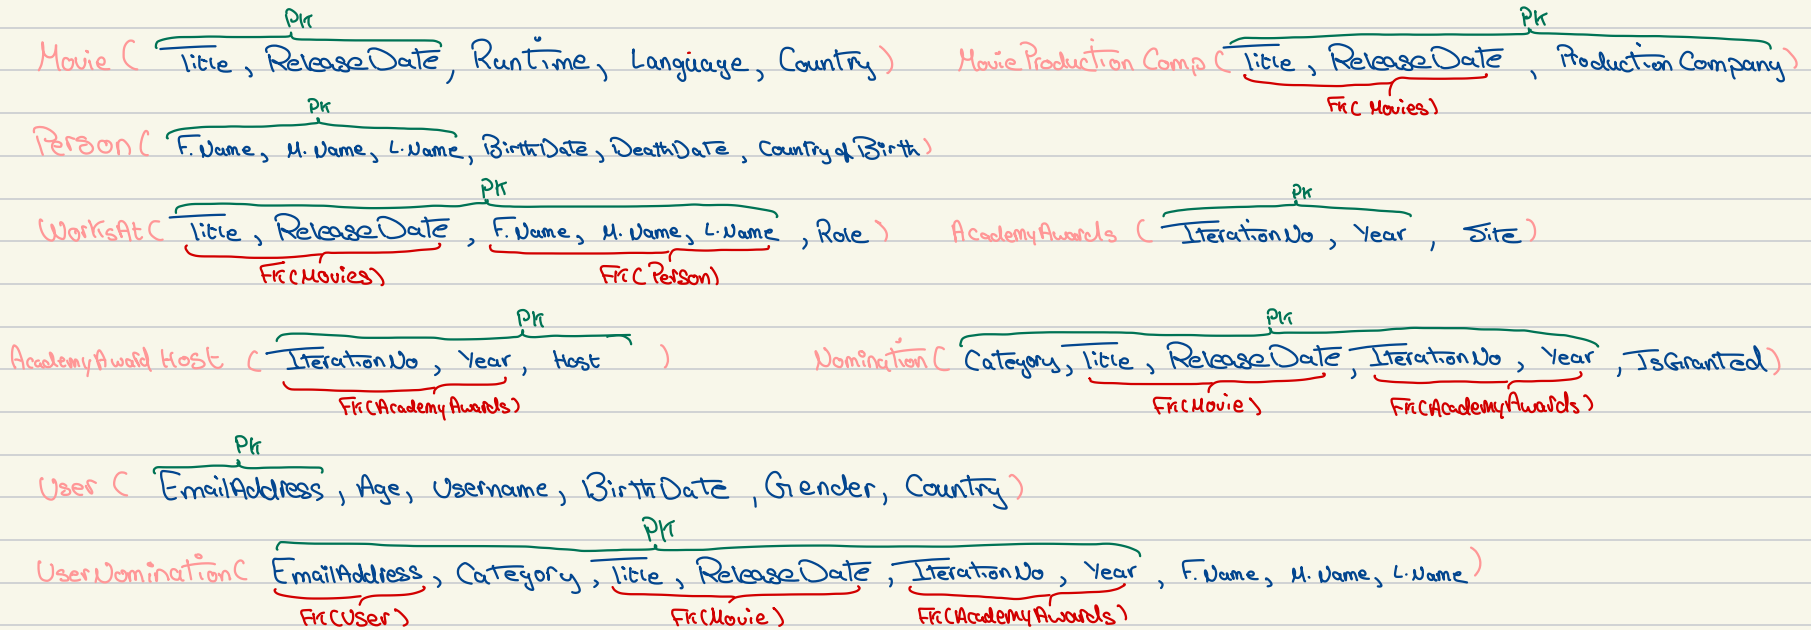 PK PK
Movie ( Title, ReleaseDate, Runtime, Language, Country) MovieProductionComp ( Title, ReleaseDate, ProductionCompany)
FK(Movies)
PK
Person ( F.Name, M.Name, L.Name, BirthDate, DeathDate, CountryofBirth)
PK PK
WorksAt ( Title, ReleaseDate, F.Name, M.Name, L.Name, Role) AcademyAwards ( IterationNo, Year, Site)
FK(Movies) FK(Person)
PK PK
AcademyAward Host ( IterationNo, Year, Host ) Nomination ( Category, Title, ReleaseDate, IterationNo, Year, IsGranted)
FK(AcademyAwards) FK(Movie) FK(AcademyAwards)
PK
User ( EmailAddress, Age, Username, BirthDate, Gender, Country)
PK
UserNomination ( EmailAddress, Category, Title, ReleaseDate, IterationNo, Year, F.Name, M.Name, L.Name)
FK(User) FK(Movie) FK(AcademyAwards)